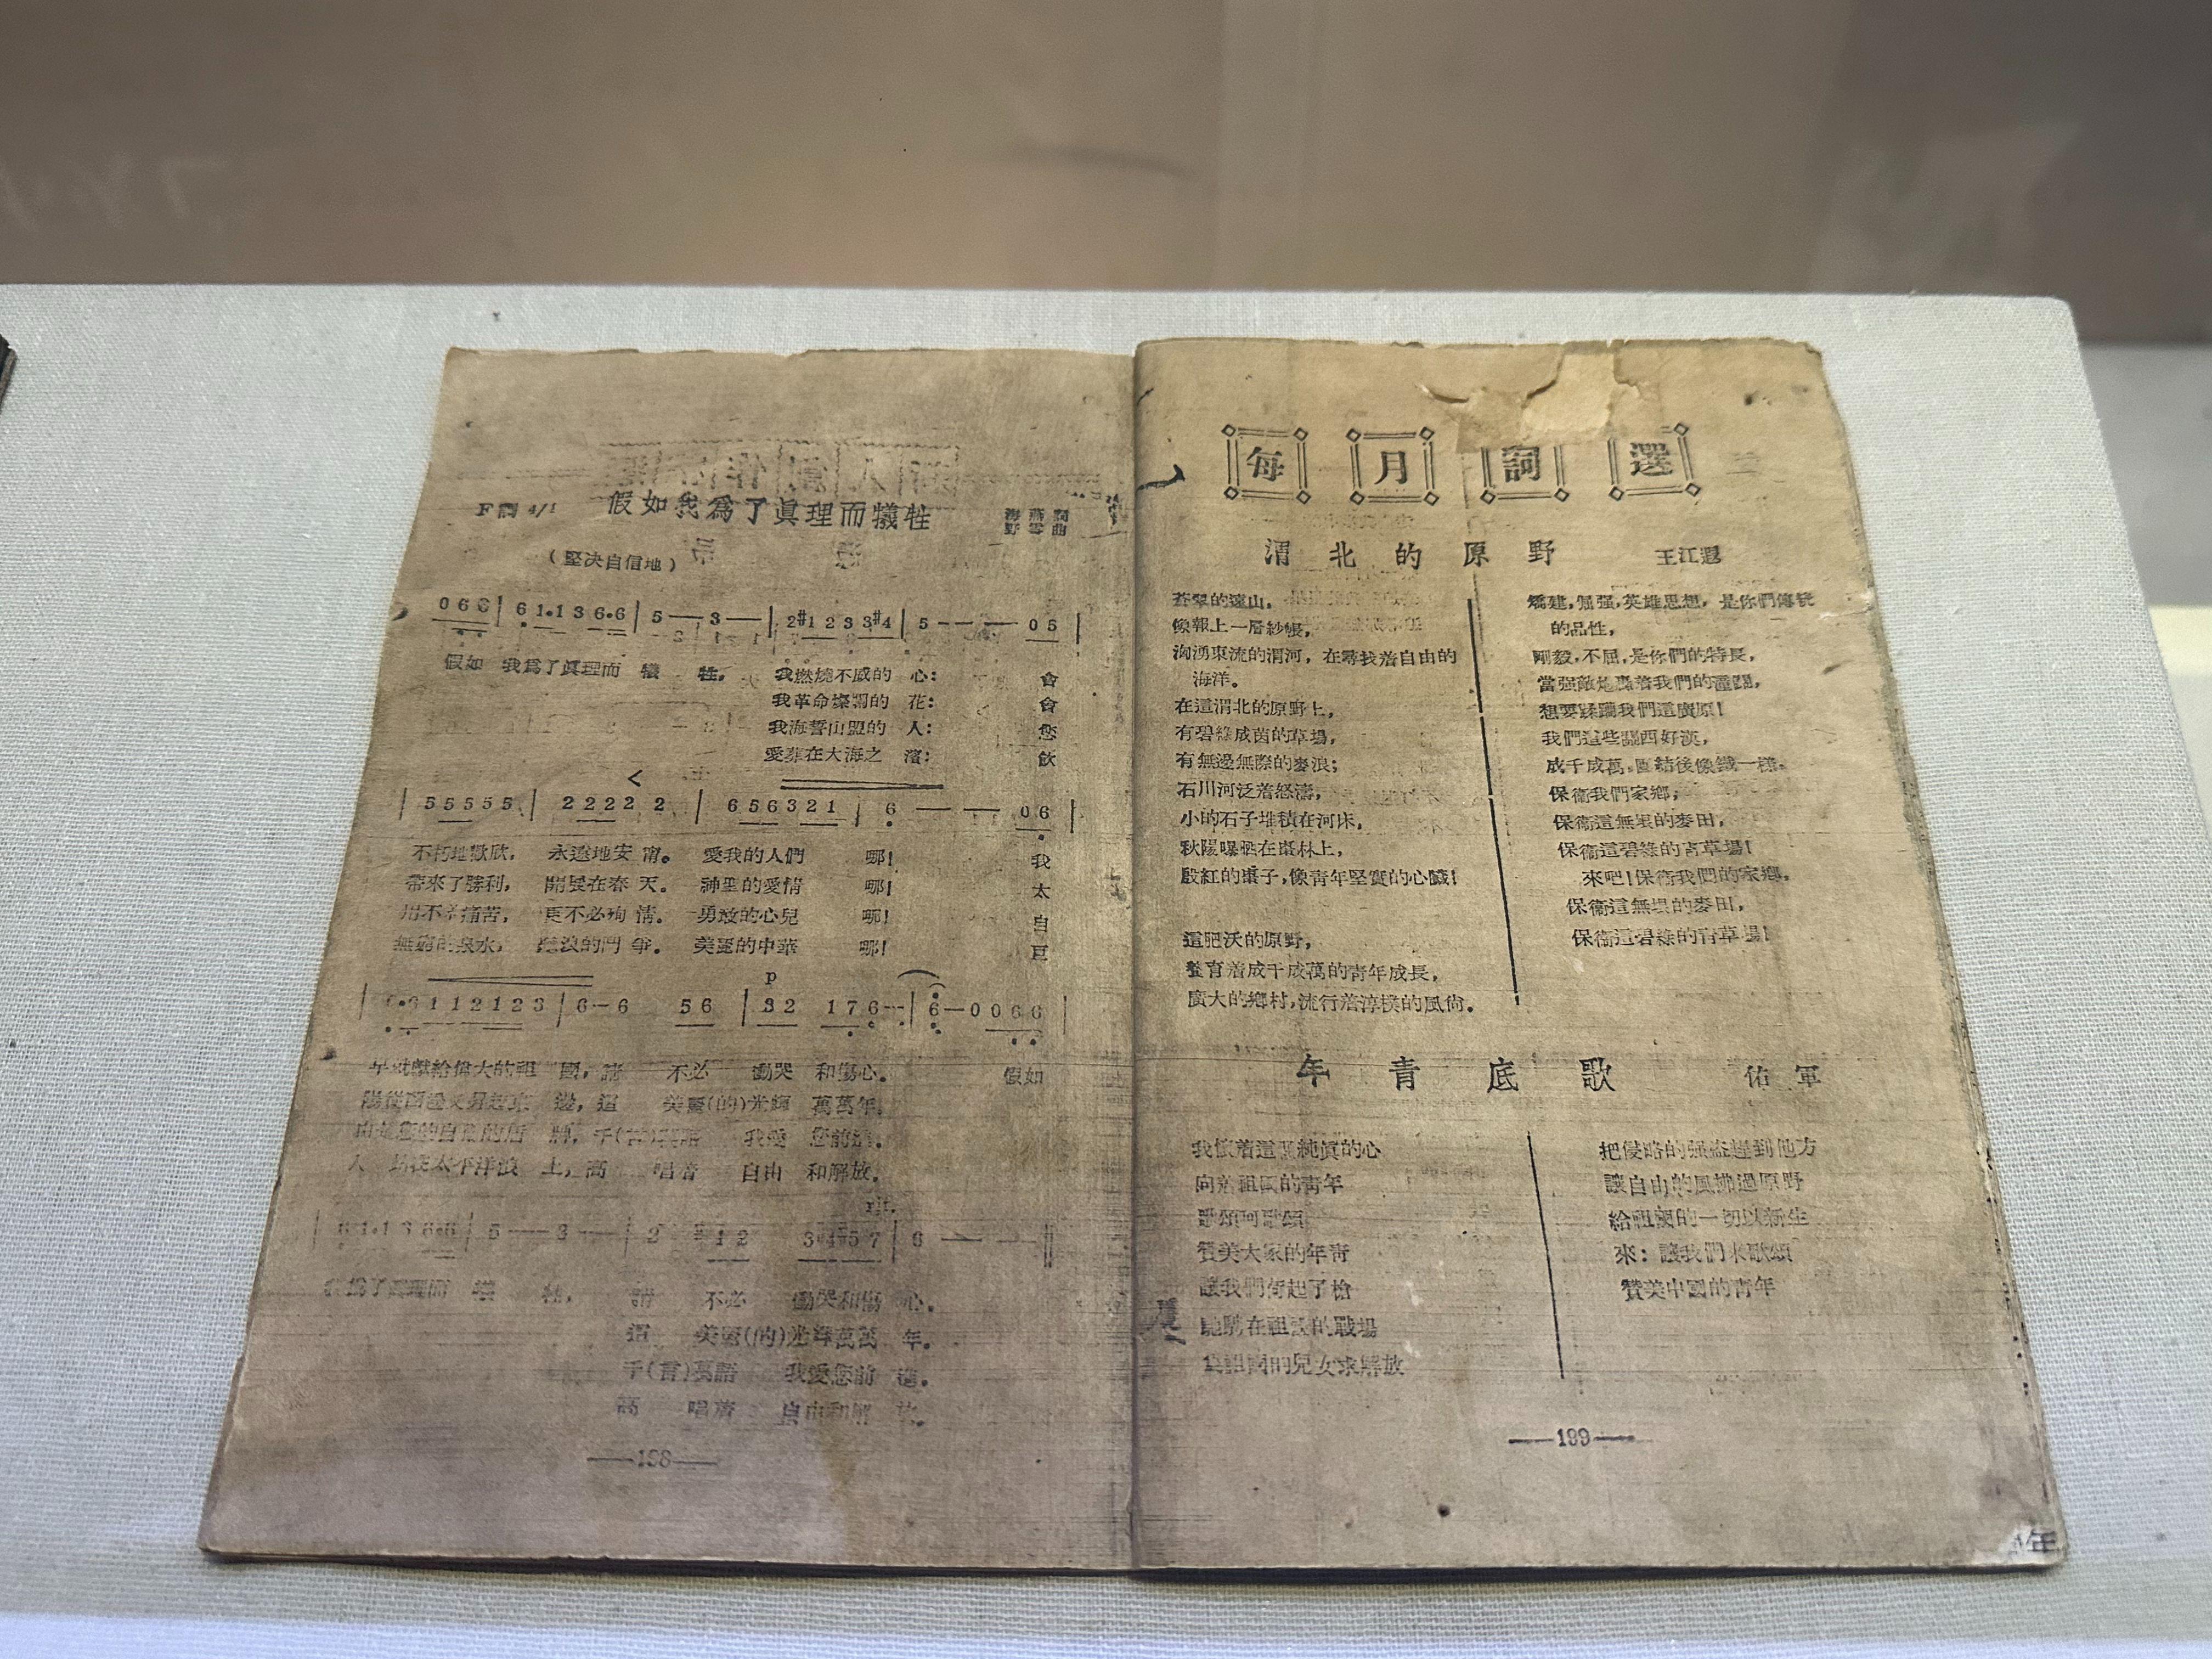 F調 4/1 假如我為了眞理而犧牲
海燕詞
野雲曲
(堅決自信地)
0 6 6 | 6 1·1 3 6·6 | 5 — 3 — | 2 #1 2 3 3 #4 | 5 — — 0 5 |
假如 我為了眞理而 犧 牲, 我燃燒不滅的 心: 會
我革命燦爛的 花: 會
我海誓山盟的 人: 您
愛葬在大海之 濱: 飲
<
| 5 5 5 5 5 | 2 2 2 2 2 | 6 5 6 3 2 1 | 6 — — 0 6 |
不朽地歡欣, 永遠地安 甯。 愛我的人們 哪! 我
帶來了勝利, 開展在春 天。 神聖的愛情 哪! 太
用不着痛苦, 更不必殉 情。 勇敢的心兒 哪! 自
無窮的泉水, 的鬥 爭。 美麗的中華 哪! 巨
p
6·6 1 1 2 1 2 3 | 6 — 6 5 6 | 3 2 1 7 6 — | 6 — 0 0 6 6 |
早就獻給偉大的祖 國, 請 不必 慟哭 和傷心。 假如
陽從西邊又昇起東 邊, 這 美麗(的)光輝 萬萬年。
千(言)萬語 我愛 您前進。
人 太平洋浪 上, 高 唱着 自由 和解放。
rit.
6 1·1 3 6·6 | 5 — 3 — | 2 #1 2 3 #4 #5 7 | 6 — — ‖
我為了眞理而 犧 牲, 請 不必 慟哭和傷 心。
這 美麗(的)光輝萬萬 年。
千(言)萬語 我愛您前 進。
高 唱着 自由和解 放。
—198—
每月詞選
渭北的原野 王江
蒼翠的遠山,
像報上一層紗帳,
洶湧東流的渭河, 在尋找着自由的
海洋。
在這渭北的原野上,
有碧綠成茵的草場,
有無邊無際的麥浪;
石川河泛着怒濤,
小的石子堆積在河床,
秋陽曝晒在棗林上,
殷紅的棗子,像青年堅實的心臟!
這肥沃的原野,
養育着成千成萬的青年成長,
廣大的鄉村,流行着淳樸的風尙。
矯建,倔强,英雄思想, 是你們傳統
的品性,
剛毅,不屈,是你們的特長,
當强敵炮轟着我們的潼關,
想要蹂躪我們這廣原!
我們這些關西好漢,
成千成萬,團結後像鐵一樣。
保衞我們家鄉,
保衞這無垠的麥田,
保衞這碧綠的青草場!
來吧!保衞我們的家鄉,
保衞這無垠的麥田,
保衞這碧綠的青草場!
年青底歌 佑軍
我懷着這顆純眞的心
向着祖國的青年
歌頌呵歌頌
贊美大家的年青
讓我們荷起了槍
馳騁在祖國的戰場
為祖國的兒女求解放
把侵略的强盜趕到他方
讓自由的風拂過原野
給祖國的一切以新生
來: 讓我們來歌頌
贊美中國的青年
—199—
年